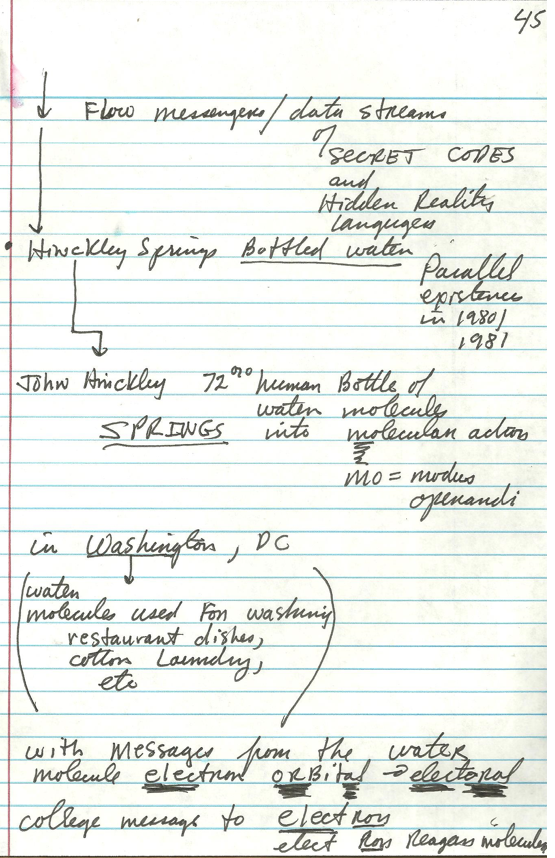 45
Flow messengers/data streams
of
SECRET CODES
and
Hidden Reality
Languages
• Hinckley Springs Bottled water
Parallel
existence
in 1980/
1981
John Hinckley 72% human Bottle of
water molecules
SPRINGS into molecular action
MO = modus
operandi
in Washington, DC
(water
molecules used For washing
restaurant dishes,
cotton Laundry,
etc)
with messages from the water
molecule electron ORBital → electoral
college message to electron
elect Ron Reagan "molecules